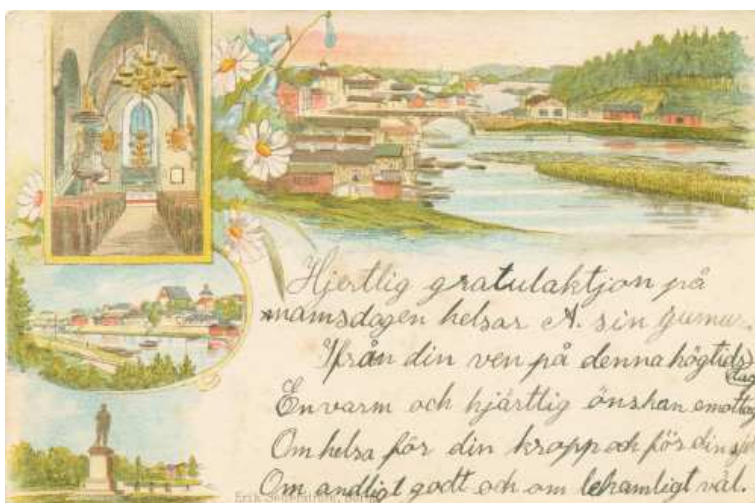 Hjertlig gratulaktjon på
namsdagen helsar A. sin
Ifrån din ven på denna högtids
dag
En varm och hjärtlig önskan emottag
Om helsa för din kropp och för din
Om andligt godt och om lekamligt väl.
Erik